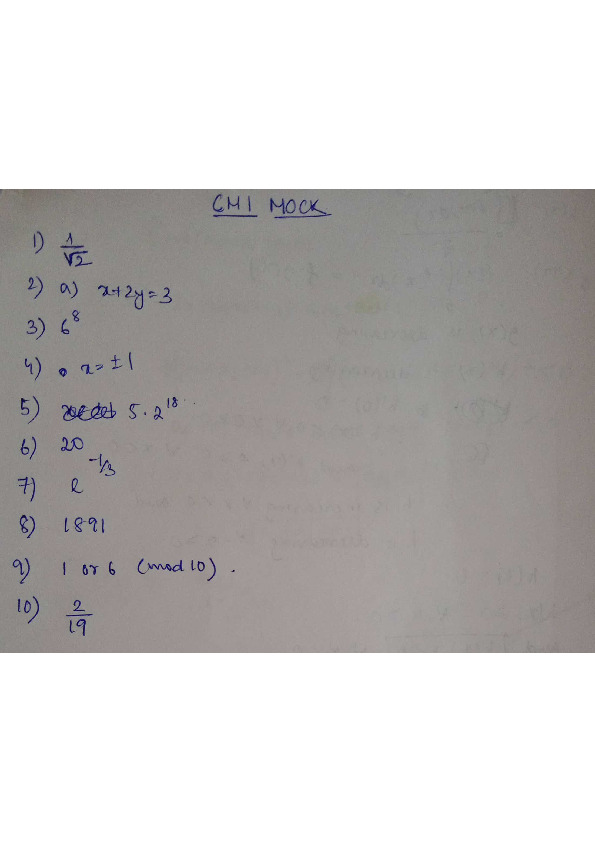 CMI MOCK
1) 1/√2
2) a) x+2y=3
3) 6^8
4) x=±1
5) 5·2^18
6) 20
7) e^-1/3
8) 1891
9) 1 or 6 (mod 10).
10) 2/19